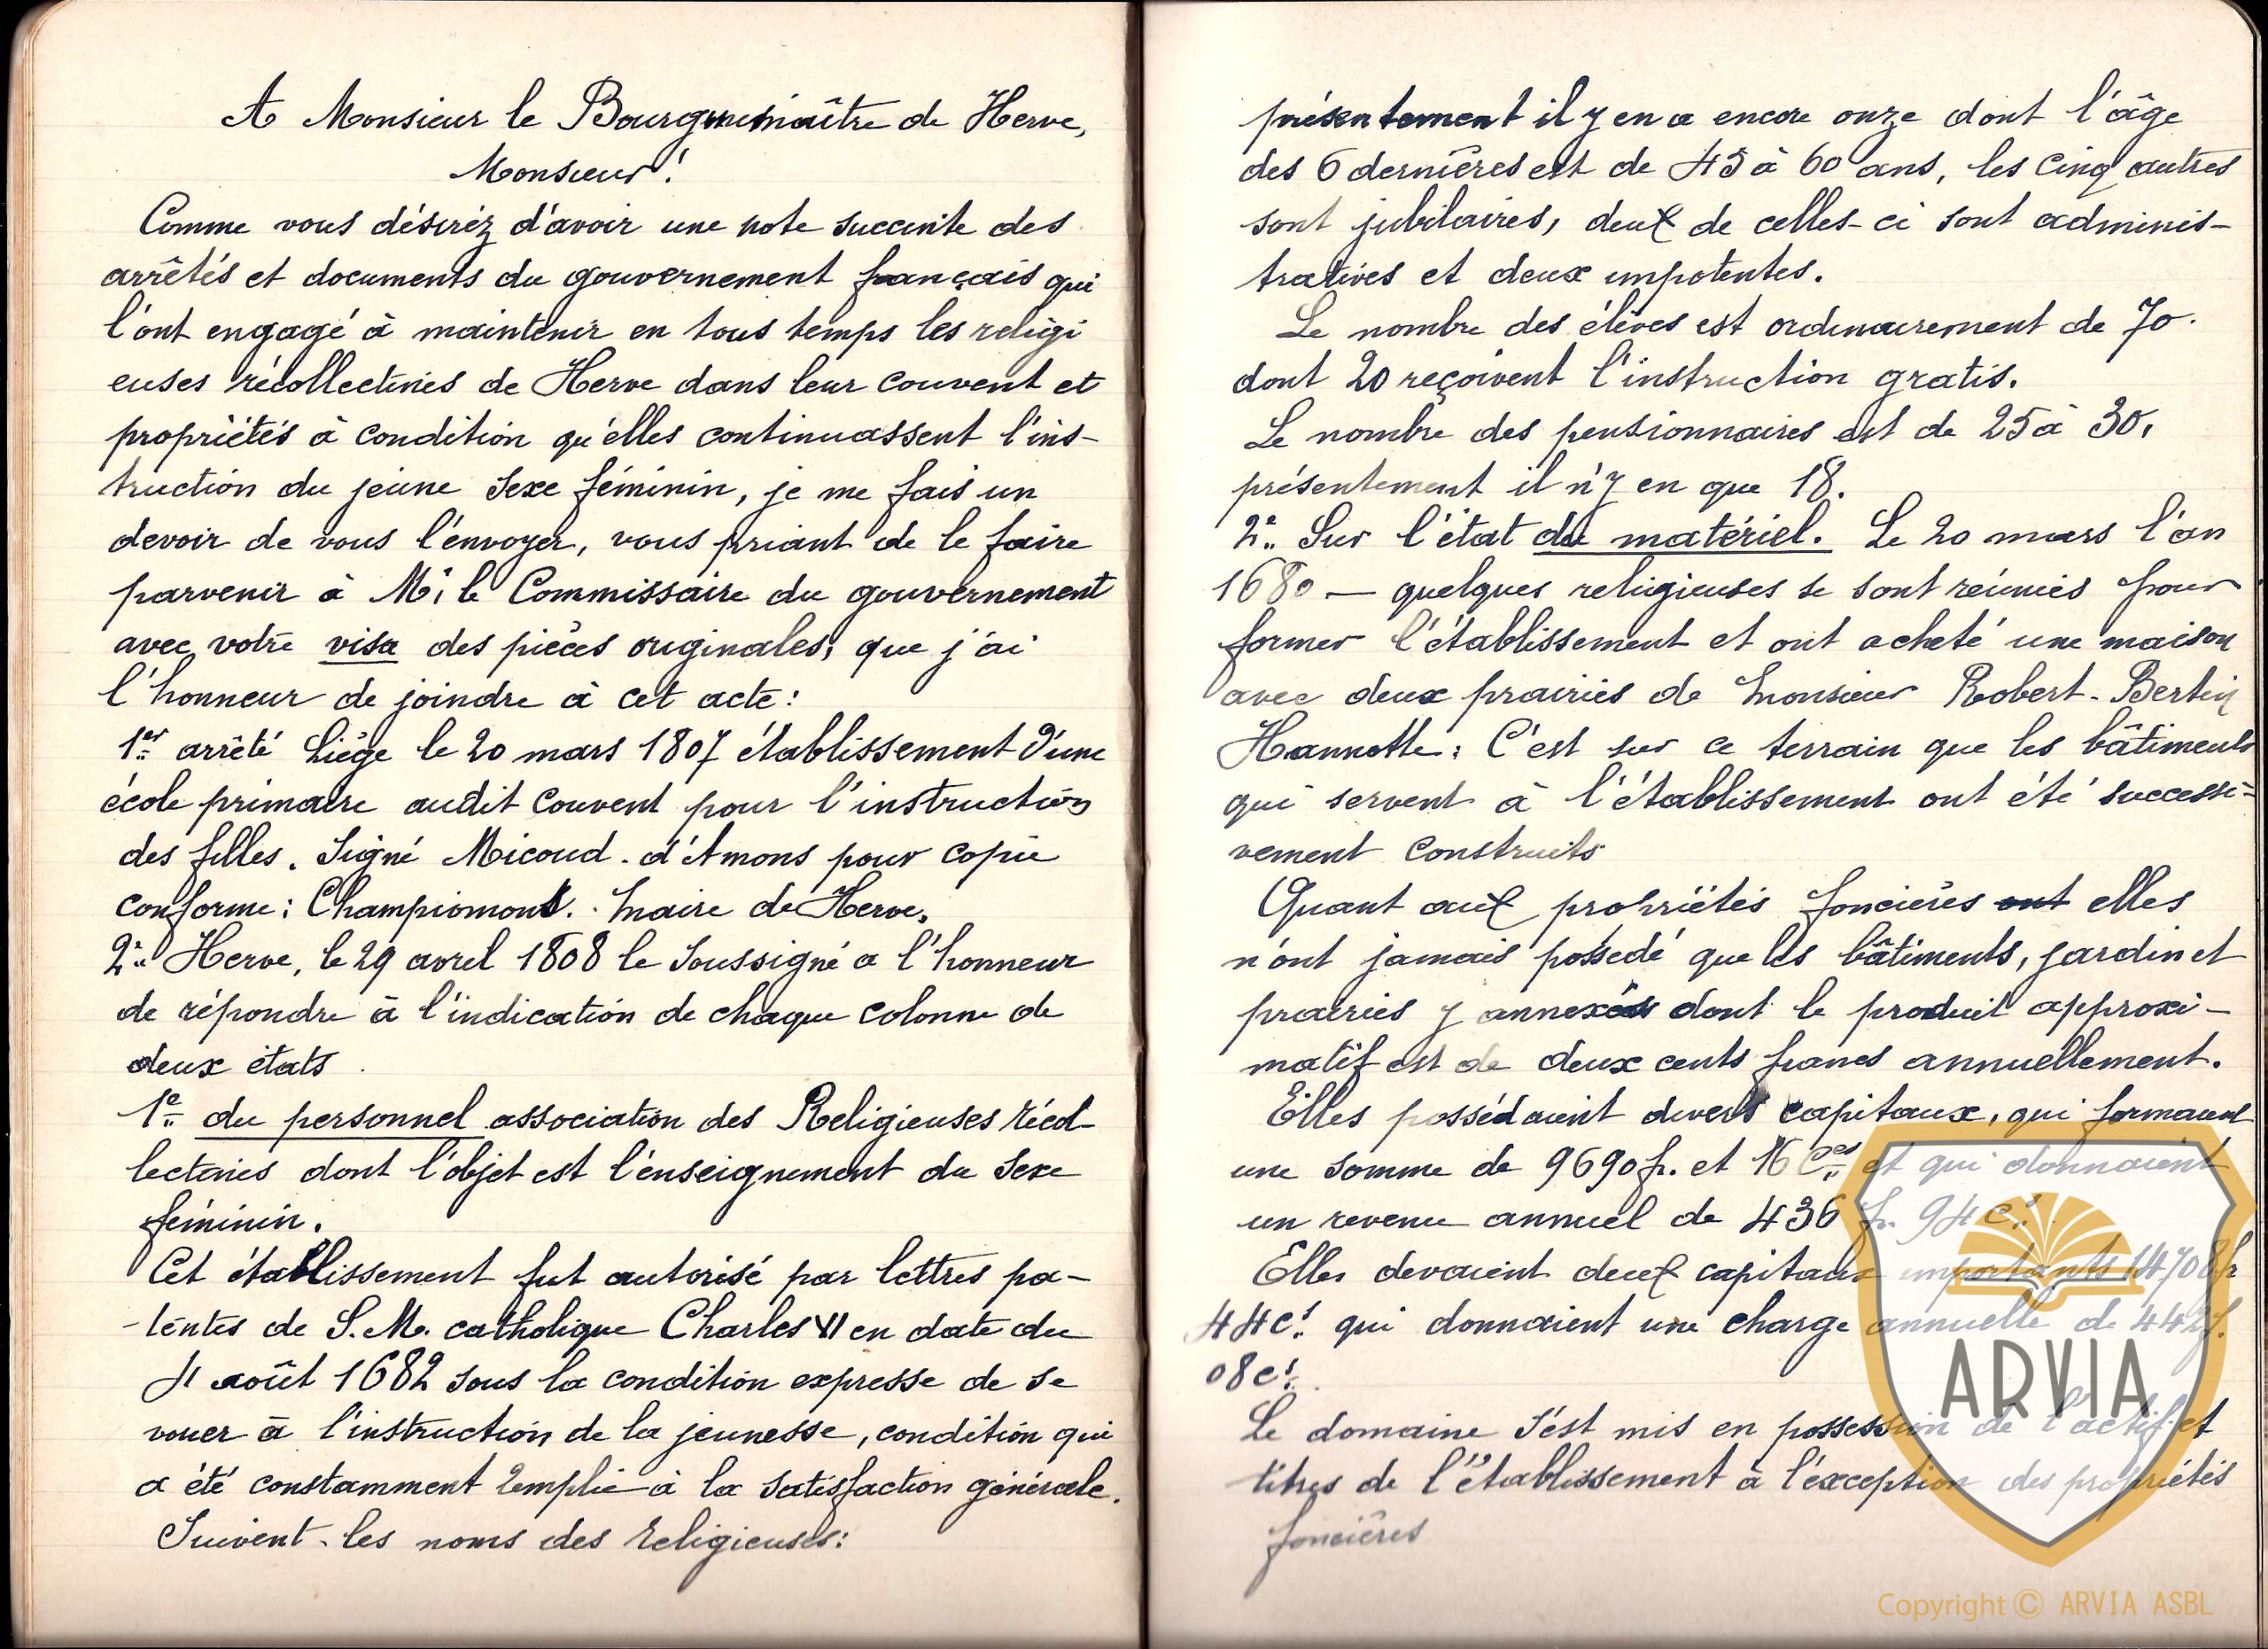 A Monsieur le Bourguemaître de Herve,
Monsieur!
Comme vous désiréz d'avoir une note succinte des
arrêtés et documents du gouvernement français qui
l'ont engagé à maintenir en tous temps les religi
euses récollectines de Herve dans leur couvent et
propriétés à condition qu'elles continuassent l'ins-
truction du jeune sexe féminin, je me fais un
devoir de vous l'envoyer, vous priant de le faire
parvenir à Mr le Commissaire du gouvernement
avec votre visa des pièces originales, que j'ai
l'honneur de joindre à cet acte:
1er arrêté Liège le 20 mars 1807 établissement d'une
école primaire audit couvent pour l'instruction
des filles. Signé Micoud. d'Umons pour copie
conforme: Championont. Maire de Herve.
2e Herve, le 29 avril 1808 le soussigné a l'honneur
de répondre à l'indication de chaque colonne de
deux états
1e du personnel association des Religieuses récol-
lectines dont l'objet est l'enseignement du sexe
féminin.
Cet établissement fut autorisé par lettres pa-
tentes de S.M. catholique Charles VI en date du
août 1682 sous la condition expresse de se
vouer à l'instruction de la jeunesse, condition qui
a été constamment remplie à la satisfaction générale.
Suivent les noms des religieuses:
présentement il y en a encore onze dont l'âge
des 6 dernières est de 45 à 60 ans, les cinq autres
sont jubilaires, deux de celles-ci sont adminis-
tratives et deux impotentes.
Le nombre des élèves est ordinairement de 70.
dont 20 reçoivent l'instruction gratis.
Le nombre des pensionnaires est de 25 à 30,
présentement il n'y en que 18.
2e Sur l'état du matériel. Le 20 mars l'an
1680 — quelques religieuses se sont réunies pour
former l'établissement et ont acheté une maison
avec deux prairies de Monsieur Robert-Bertin
Hannotte: C'est sur ce terrain que les bâtiments
qui servent à l'établissement ont été successi=
vement construits
Quant aux propriétés foncières ont elles
n'ont jamais possédé que les bâtiments, jardin et
prairies y annexés dont le produit approxi-
matif est de deux cents francs annuellement.
Elles possédaient divers capitaux, qui formaient
une somme de 9690 fr. et 16 Ces et qui donnaient
un revenu annuel de 436 fr. 94 cs.
Elles devaient deux capitaux importants 14708 fr
44 cs qui donnaient une charge annuelle de 442 f.
08 cs.
Le domaine s'est mis en possession de l'actif et
titres de l'établissement à l'exception des propriétés
foncières
ARVIA
Copyright © ARVIA ASBL